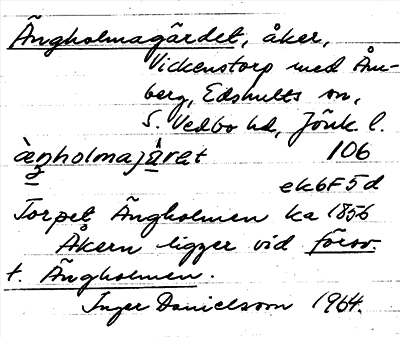 Ängholmagärdet, åker,
Vickenstorp med Åm-
berg, Edshults sn,
S. Vedbo hd, Jönk. l.
àŋholmajä́rat 106
ek6F5d
Torpet Ängholmen ka 1856
Åkern ligger vid försv.
t. Ängholmen.
Inger Danielsson 1964.